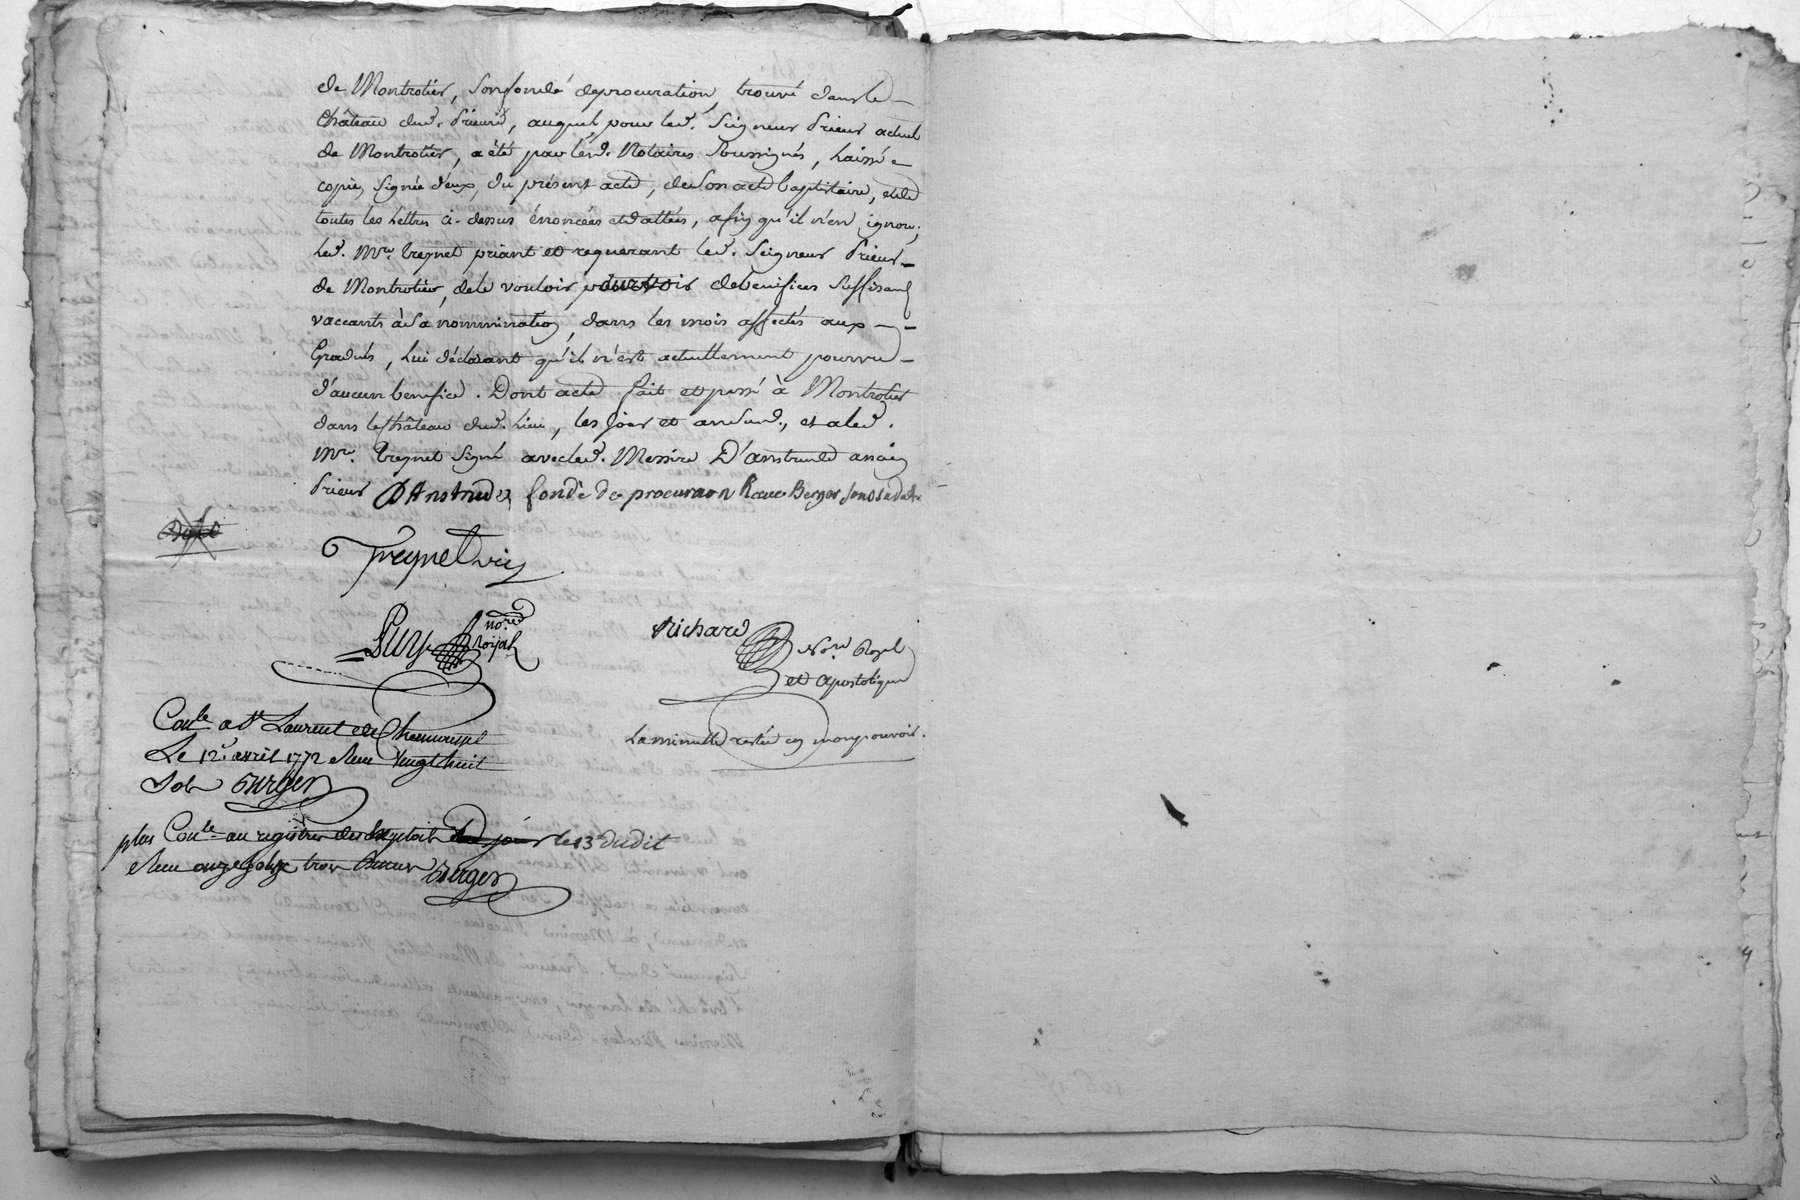 de Montrotier, Son fondé de procuration, trouvé dans le
Château dud. Prieuré, auquel, pour led. Seigneur Prieur actuel
de Montrotier, a été par lesd. Notaires Soussignés, Laissé
copie, signée d'eux, du présent acte, de Son acte baptistaire, et de
toutes les Lettres ci-dessus énoncées et dattées, afin qu'il n'en ignore;
led. Mre. Treynet priant et requerant led. Seigneur Prieur
de Montrotier, de le vouloir pourvoir de benifices Suffisant
vaccants à Sa nommination, dans les mois affectés aux
Gradués, Lui déclarant qu'il n'est actuellement pourvu
d'aucun benefice. Dont acte fait et passé à Montrotier
dans le Château dud. Lieu, les Jour et an Susd., et a led.
Mre. Treynet Signé avec led. Messire D'anstrude ancien
Prieur DAnstrude, fondé de procuraon Berger
Treynet vic
Pury nore. royal
Richard Nore. Royal
et apostolique
La minutte restée en mon pouvoir.
Conle a St. Laurent de Chamousset
Le 12. avril 1772 Reçu Vingt huit
Sols Berger
plus Conle au registre des Exploits le 13 dudit
Reçu onze Sols trois deniers Berger